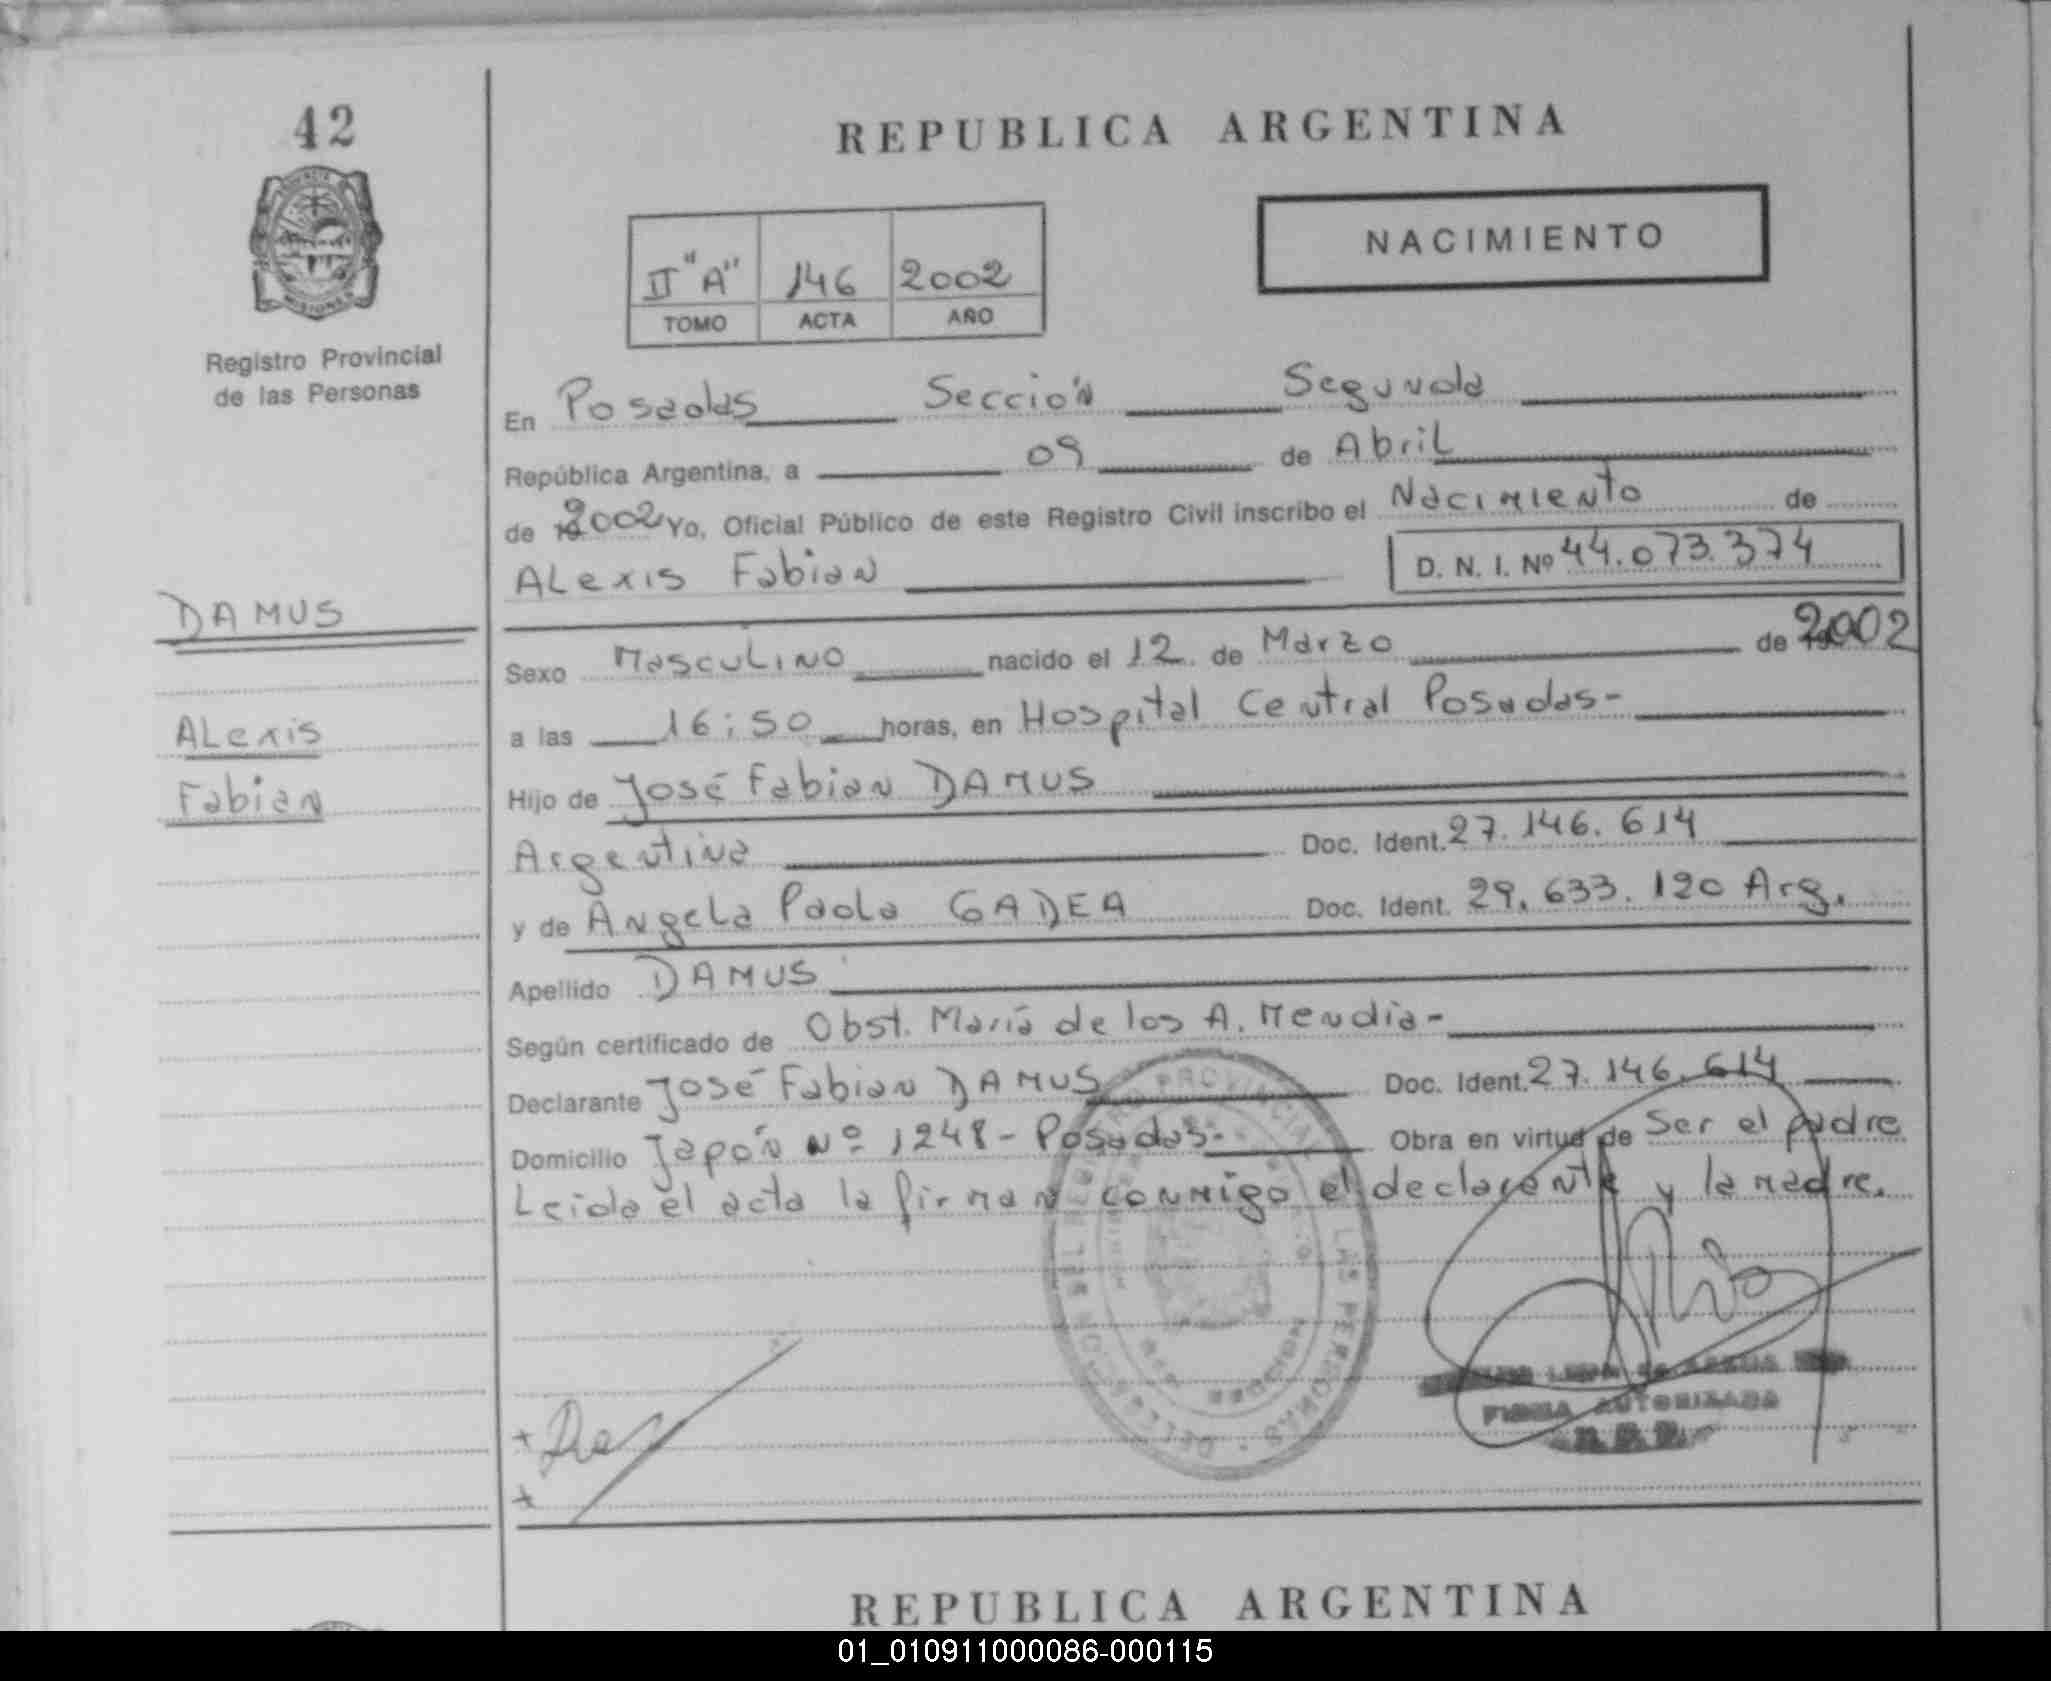 42
REPUBLICA ARGENTINA
NACIMIENTO
II "A" 146 2002
TOMO ACTA AÑO
Registro Provincial
de las Personas
En Posadas Sección Segunda
República Argentina, a 09 de Abril
de 2002 Yo, Oficial Público de este Registro Civil inscribo el Nacimiento de
Alexis Fabian D. N. I. Nº 44.073.374
DAMUS
Sexo Masculino nacido el 12 de Marzo de 2002
Alexis
a las 16:50 horas, en Hospital Central Posadas-
Fabian
Hijo de José Fabian DAMUS
Argentina Doc. Ident. 27.146.614
y de Angela Paola GADEA Doc. Ident. 29.633.120 Arg.
Apellido DAMUS
Según certificado de Obst. María de los A. Mendia-
Declarante José Fabian DAMUS Doc. Ident. 27.146.614
Domicilio Japón Nº 1248- Posadas- Obra en virtud de Ser el padre
Leida el acta la firman conmigo el declarante y la madre.
REGISTRO PROVINCIAL DE LAS PERSONAS
MISIONES
FIRMA AUTORIZADA
REPUBLICA ARGENTINA
01_010911000086-000115